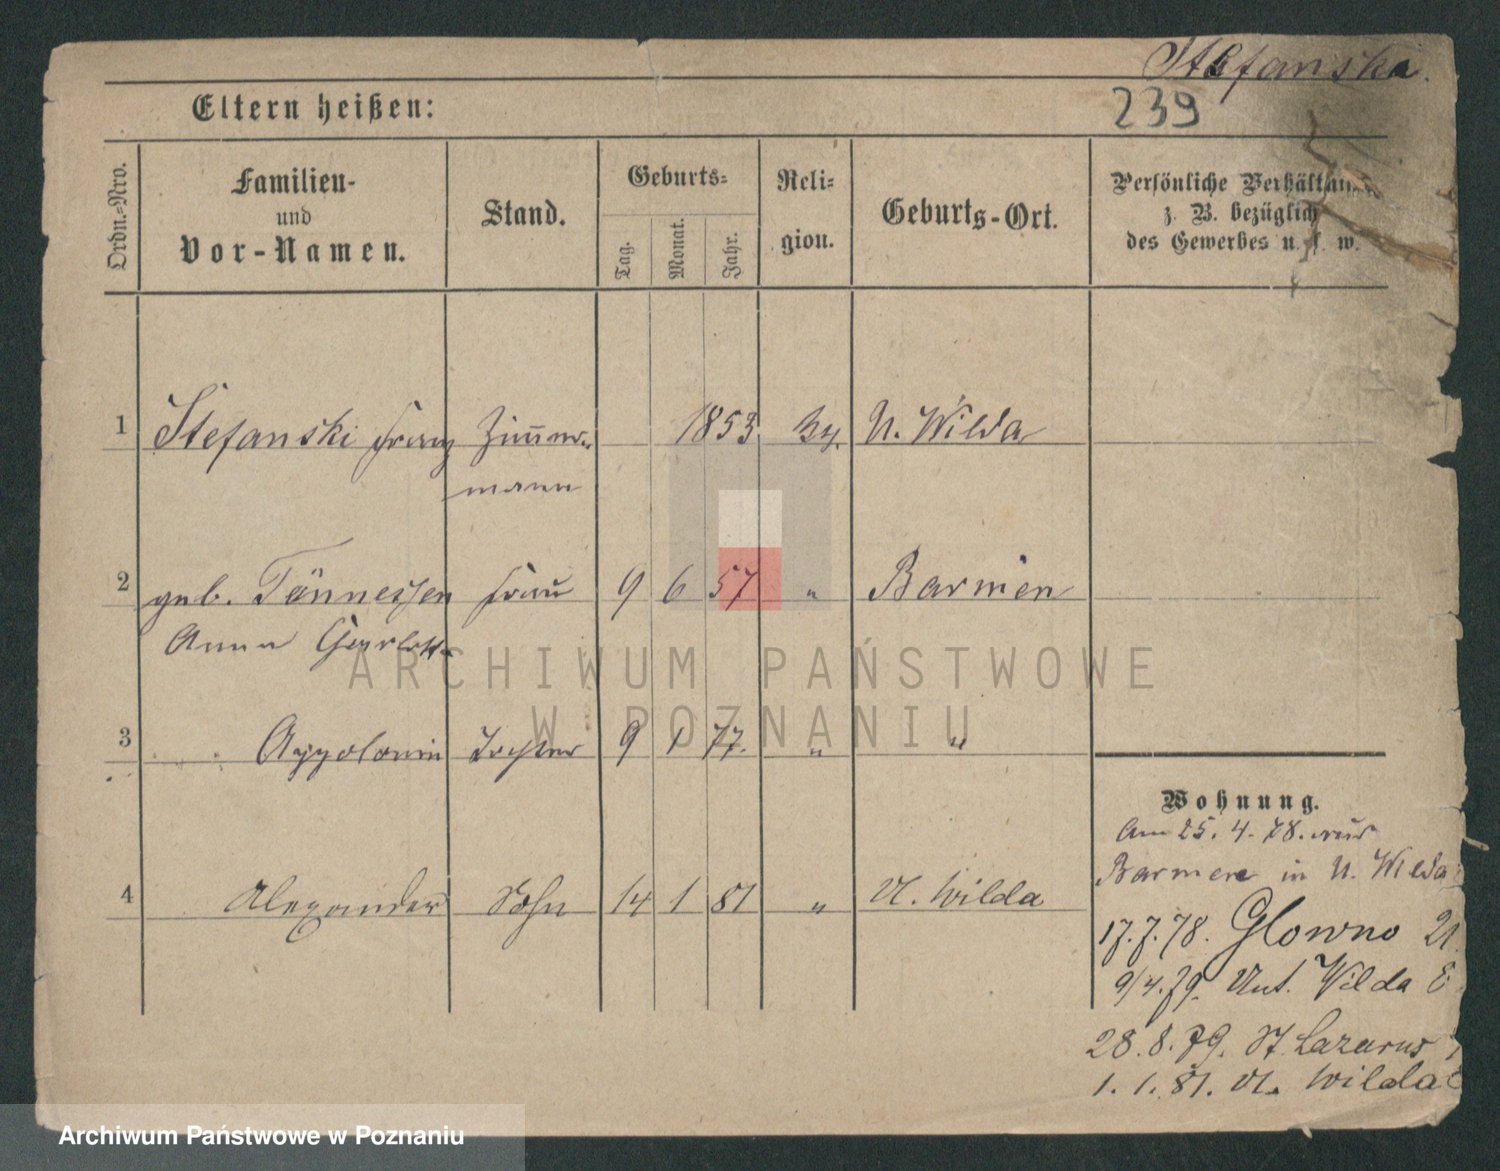 Stefanski.
239
Eltern heißen:
Ordn.-Nro.
Familien-
und
Vor-Namen.
Stand.
Geburts-
Tag.
Monat.
Jahr.
Reli-
gion.
Geburts-Ort.
Persönliche Verhältn
z. B. bezüglich
des Gewerbes u. s. w.
1 Stefanski Franz Zimmer- 1853 U. Wilda
mann
2 geb. Tönnessen Frau 9 6 57 " Barmen
Anna
3 Appolonia Tochter 9 1 77. " "
4 Alexander Sohn 14 1 81 " U. Wilda
Wohnung.
Am 25. 4. 78. aus
Barmen in U. Wilda
17. 7. 78. Glowno 21
9/4. 79. Unt. Wilda E
28. 8. 79. St. Lazarus
1. 1. 81. U. Wilda
ARCHIWUM PAŃSTWOWE
W POZNANIU
Archiwum Państwowe w Poznaniu